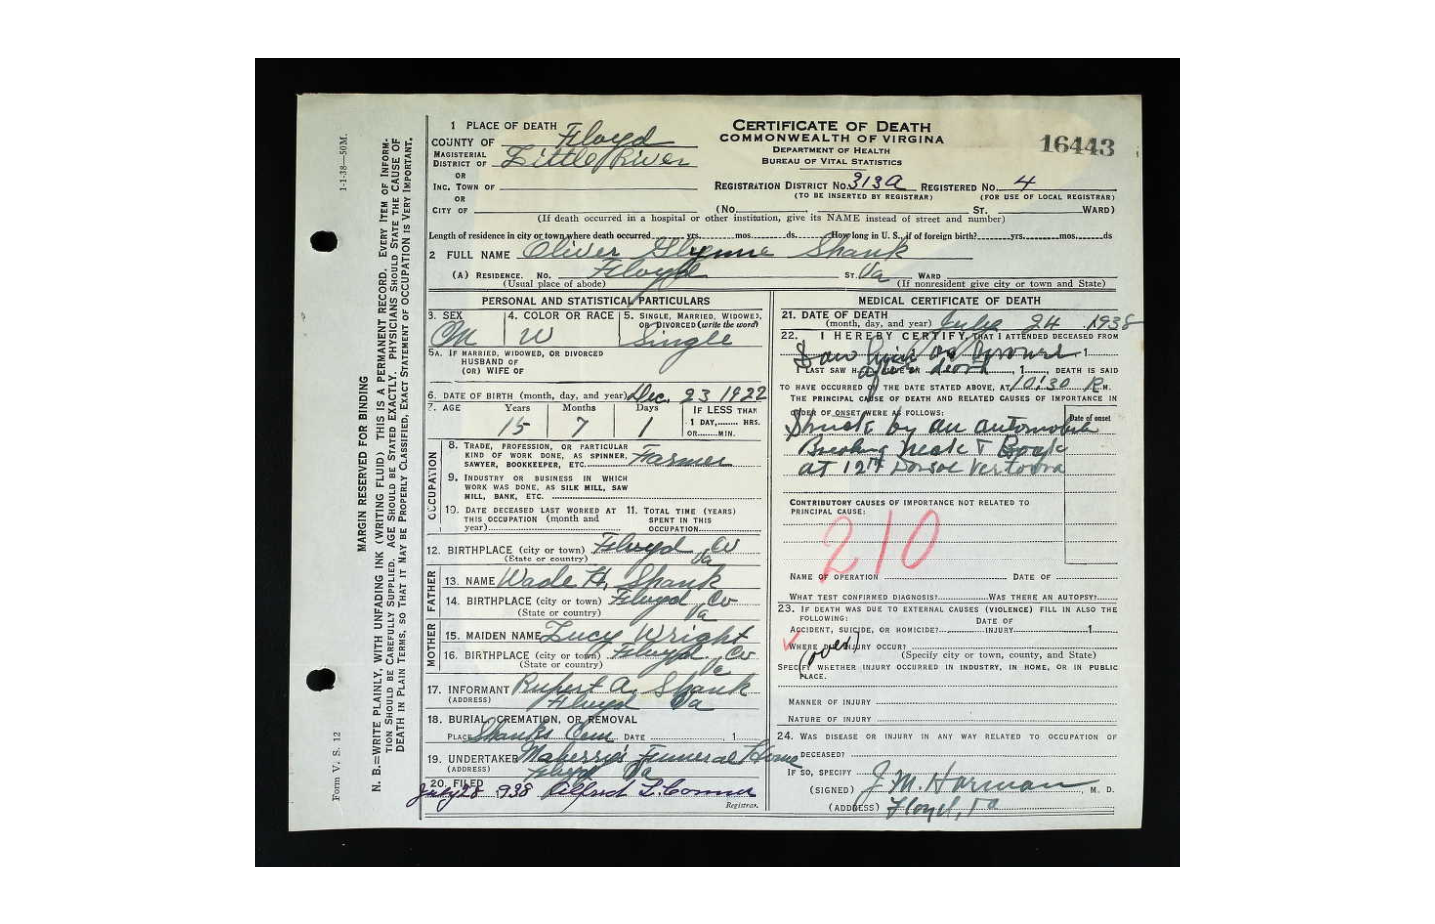 1 PLACE OF DEATH
COUNTY OF Floyd
MAGISTERIAL DISTRICT OF Little River
OR
INC. TOWN OF
OR
CITY OF
CERTIFICATE OF DEATH
COMMONWEALTH OF VIRGINIA
DEPARTMENT OF HEALTH
BUREAU OF VITAL STATISTICS
16443
REGISTRATION DISTRICT NO. 313A REGISTERED NO. 4
(TO BE INSERTED BY REGISTRAR) (FOR USE OF LOCAL REGISTRAR)
(No. ST. WARD)
(If death occurred in a hospital or other institution, give its NAME instead of street and number)
Length of residence in city or town where death occurred yrs. mos. ds. How long in U. S., if of foreign birth? yrs. mos. ds
2 FULL NAME Oliver Glynne Shank
(A) RESIDENCE. No. Floyd ST. Va WARD
(Usual place of abode) (If nonresident give city or town and State)
PERSONAL AND STATISTICAL PARTICULARS
3. SEX M
4. COLOR OR RACE W
5. SINGLE, MARRIED, WIDOWED, OR DIVORCED (write the word) Single
5A. IF MARRIED, WIDOWED, OR DIVORCED
HUSBAND OF
(OR) WIFE OF
6. DATE OF BIRTH (month, day, and year) Dec. 23 1922
7. AGE Years Months Days IF LESS THAN
15 7 1 1 DAY, HRS.
OR MIN.
OCCUPATION
8. TRADE, PROFESSION, OR PARTICULAR
KIND OF WORK DONE, AS SPINNER,
SAWYER, BOOKKEEPER, ETC. Farmer
9. INDUSTRY OR BUSINESS IN WHICH
WORK WAS DONE, AS SILK MILL, SAW
MILL, BANK, ETC.
10. DATE DECEASED LAST WORKED AT THIS OCCUPATION (month and year)
11. TOTAL TIME (YEARS) SPENT IN THIS OCCUPATION
12. BIRTHPLACE (city or town) Floyd Co
(State or country) Va
FATHER
13. NAME Wade H. Shank
14. BIRTHPLACE (city or town) Floyd Co
(State or country) Va
MOTHER
15. MAIDEN NAME Lucy Wright
16. BIRTHPLACE (city or town) Floyd Co
(State or country) Va
17. INFORMANT Rupert A. Shank
(ADDRESS) Floyd Va
18. BURIAL, CREMATION, OR REMOVAL
PLACE Shanks Cem DATE 1
19. UNDERTAKER Maberry's Funeral Home
(ADDRESS) Floyd Va
20. FILED July 28 1938 Alfred L. Conner
Registrar.
MEDICAL CERTIFICATE OF DEATH
21. DATE OF DEATH
(month, day, and year) July 24 1938
22. I HEREBY CERTIFY, THAT I ATTENDED DECEASED FROM
Saw him
after death
I LAST SAW H ALIVE ON 1 DEATH IS SAID
TO HAVE OCCURRED ON THE DATE STATED ABOVE, AT 10:30 P. M.
THE PRINCIPAL CAUSE OF DEATH AND RELATED CAUSES OF IMPORTANCE IN
ORDER OF ONSET WERE AS FOLLOWS: Date of onset
Struck by an automobile
Breaking neck & Back
at 12th Dorsal Vertebra
CONTRIBUTORY CAUSES OF IMPORTANCE NOT RELATED TO
PRINCIPAL CAUSE:
210
NAME OF OPERATION DATE OF
WHAT TEST CONFIRMED DIAGNOSIS? WAS THERE AN AUTOPSY?
23. IF DEATH WAS DUE TO EXTERNAL CAUSES (VIOLENCE) FILL IN ALSO THE
FOLLOWING:
ACCIDENT, SUICIDE, OR HOMICIDE? DATE OF INJURY 1
WHERE DID INJURY OCCUR?
(over)
(Specify city or town, county, and State)
SPECIFY WHETHER INJURY OCCURRED IN INDUSTRY, IN HOME, OR IN PUBLIC
PLACE.
MANNER OF INJURY
NATURE OF INJURY
24. WAS DISEASE OR INJURY IN ANY WAY RELATED TO OCCUPATION OF
DECEASED?
IF SO, SPECIFY
(SIGNED) J. M. Harman, M. D.
(ADDRESS) Floyd, Va
1-1-38—50M.
MARGIN RESERVED FOR BINDING
N. B.=WRITE PLAINLY, WITH UNFADING INK (WRITING FLUID) THIS IS A PERMANENT RECORD. EVERY ITEM OF INFORM-
TION SHOULD BE CAREFULLY SUPPLIED. AGE SHOULD BE STATED EXACTLY. PHYSICIANS SHOULD STATE THE CAUSE OF
DEATH IN PLAIN TERMS, SO THAT IT MAY BE PROPERLY CLASSIFIED. EXACT STATEMENT OF OCCUPATION IS VERY IMPORTANT.
Form V. S. 12